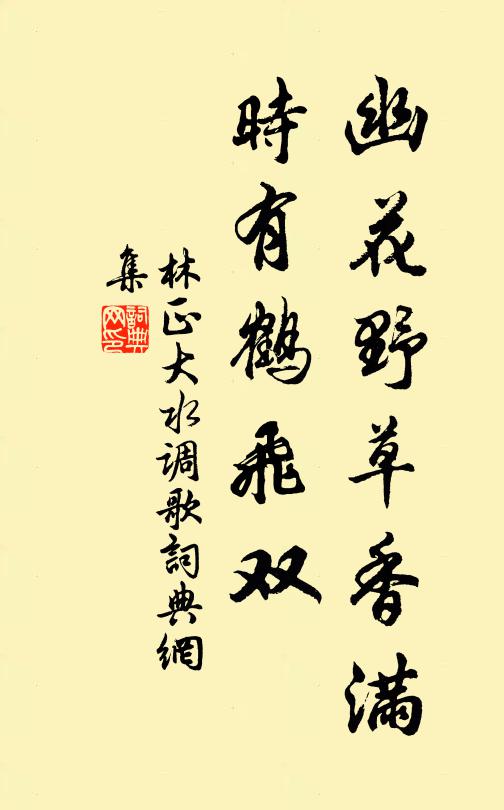 幽花野草香满
時有鶴飛双
林正大水调歌詞典網
集
詞典
网印